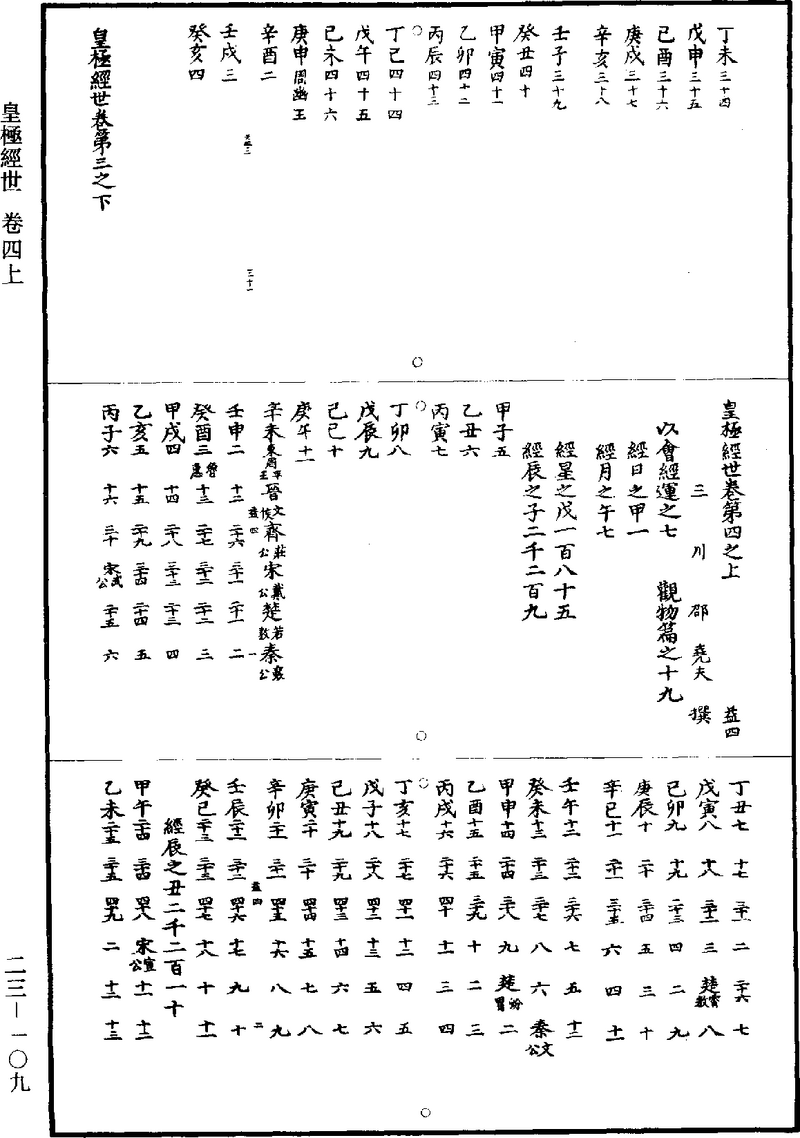 丁未三十四
戊申三十五
己酉三十六
庚戌三十七
辛亥三十八
壬子三十九
癸丑四十
甲寅四十一
乙卯四十二
丙辰四十三
丁巳四十四
戊午四十五
己未四十六
庚申周幽王
辛酉二
壬戌三
三十一
癸亥四
皇極經世卷第三之下
皇極經世卷第四之上 益四
三川邵堯夫撰
以會經運之七 觀物篇之十九
經日之甲一
經月之午七
經星之戊一百八十五
經辰之子二千二百九
甲子五
乙丑六
丙寅七
丁卯八
戊辰九
己巳十
庚午十一
辛未東周平王 晉文侯 齊莊公 宋戴公 楚若敖 秦襄公
益四 一
壬申二 十二 二十六 三十一 二十一 二
癸酉三 魯惠 十三 二十七 三十二 二十二 三
甲戌四 十四 二十八 三十三 二十三 四
乙亥五 十五 二十九 三十四 二十四 五
丙子六 十六 三十 宋武公 二十五 六
丁丑七 十七 三十一 二 二十六 七
戊寅八 十八 三十二 三 楚霄敖 八
己卯九 十九 三十三 四 二 九
庚辰十 二十 三十四 五 三 十
辛巳十一 二十一 三十五 六 四 十一
壬午十二 二十二 三十六 七 五 十二
癸未十三 二十三 三十七 八 六 秦文公
甲申十四 二十四 三十八 九 楚蚡冒 二
乙酉十五 二十五 三十九 十 二 三
丙戌十六 二十六 四十 十一 三 四
丁亥十七 二十七 四十一 十二 四 五
戊子十八 二十八 四十二 十三 五 六
己丑十九 二十九 四十三 十四 六 七
庚寅二十 三十 四十四 十五 七 八
辛卯二十一 三十一 四十五 十六 八 九
益四 二
壬辰二十二 三十二 四十六 十七 九 十
癸巳二十三 三十三 四十七 十八 十 十一
經辰之丑二千二百一十
甲午二十四 三十四 四十八 宋宣公 十一 十二
乙未二十五 三十五 四十九 二 十二 十三
皇極經世 卷四上
二三—一〇九